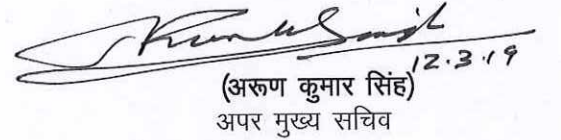 12.3.19
(अरुण कुमार सिंह)
अपर मुख्य सचिव